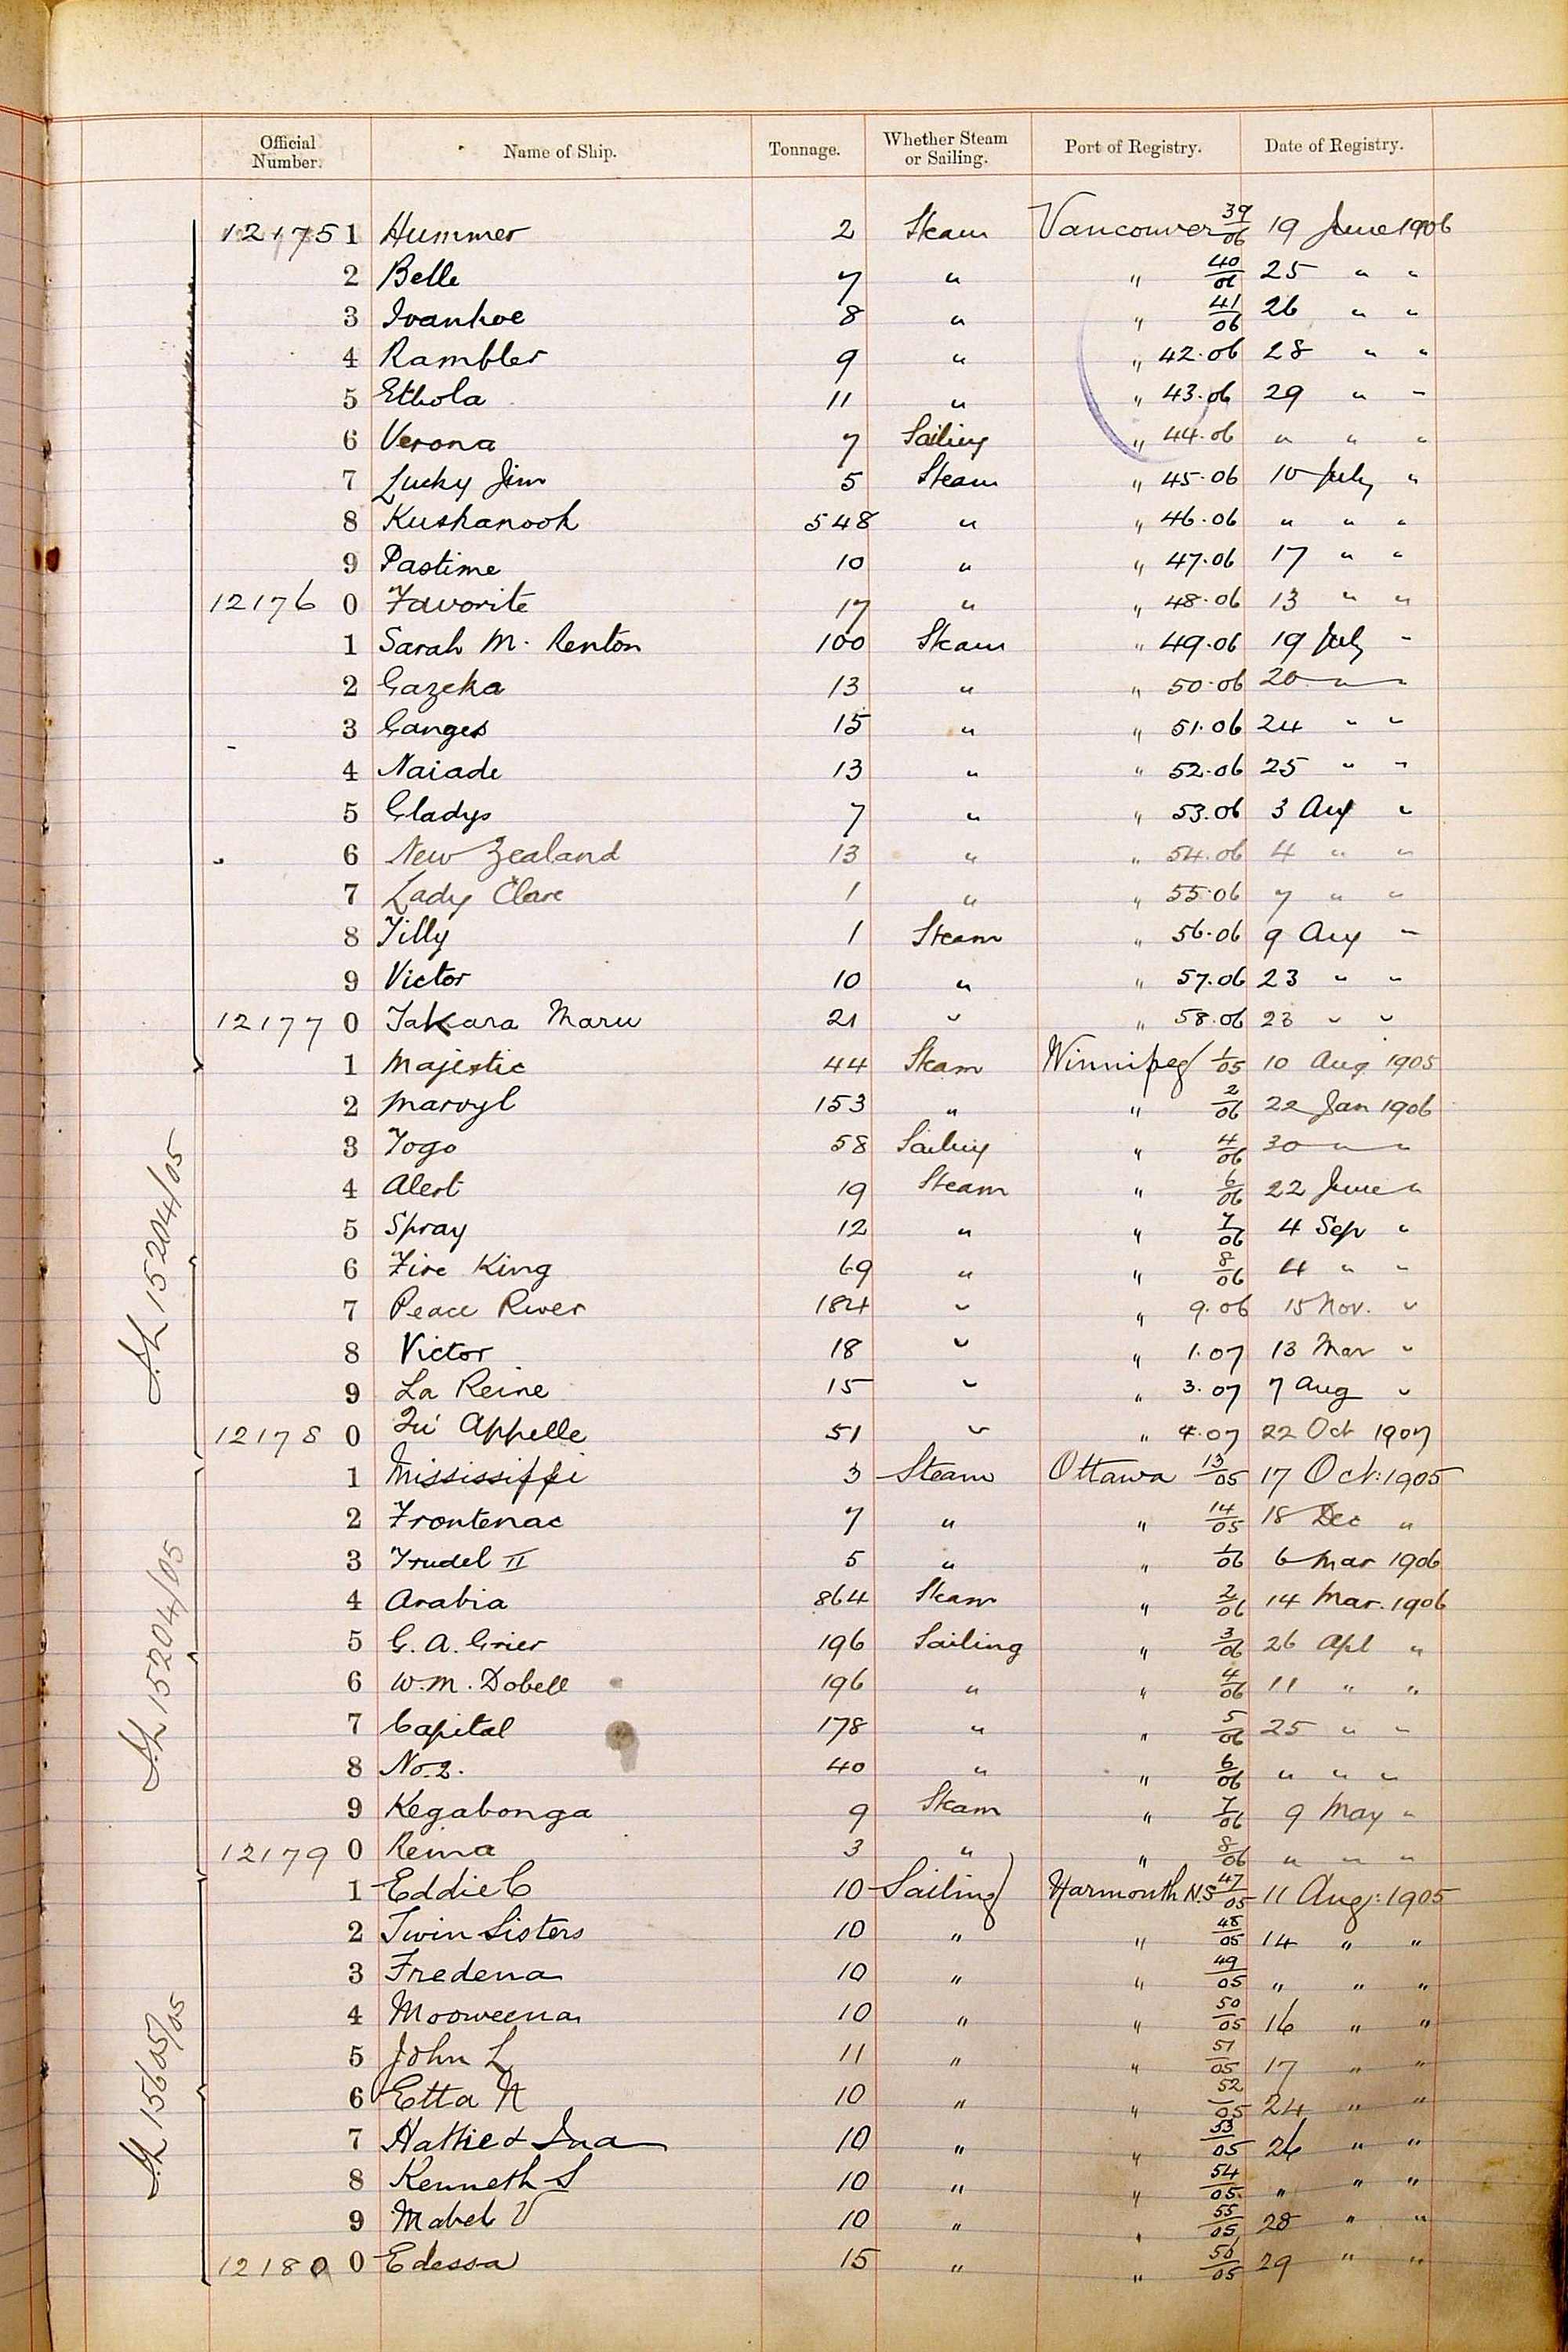 Official Number. Name of Ship. Tonnage. Whether Steam or Sailing. Port of Registry. Date of Registry.
121751 Hummer 2 Steam Vancouver 39/06 19 June 1906
2 Belle 7 " " 40/06 25 " "
3 Ivanhoe 8 " " 41/06 26 " "
4 Rambler 9 " " 42.06 28 " "
5 Ethola 11 " " 43.06 29 " "
6 Verona 7 Sailing " 44.06 " " "
7 Lucky Jim 5 Steam " 45.06 10 July "
8 Kushanook 548 " " 46.06 " " "
9 Pastime 10 " " 47.06 17 " "
12176 0 Favorite 17 " " 48.06 13 " "
1 Sarah M. Renton 100 Steam " 49.06 19 July "
2 Gazeka 13 " " 50.06 20 " "
3 Ganges 15 " " 51.06 24 " "
4 Naiade 13 " " 52.06 25 " "
5 Gladys 7 " " 53.06 3 Aug "
6 New Zealand 13 " " 54.06 4 " "
7 Lady Clare 1 " " 55.06 7 " "
8 Tilly 1 Steam " 56.06 9 Aug "
9 Victor 10 " " 57.06 23 " "
12177 0 Takara Maru 21 " " 58.06 23 " "
1 Majestic 44 Steam Winnipeg 1/05 10 Aug 1905
2 Marvyl 153 " " 2/06 22 Jan 1906
3 Togo 58 Sailing " 4/06 30 " "
4 Alert 19 Steam " 6/06 22 June "
5 Spray 12 " " 7/06 4 Sep "
6 Fire King 69 " " 8/06 4 " "
7 Peace River 184 " " 9.06 15 Nov. "
8 Victor 18 " " 1.07 13 Mar "
9 La Reine 15 " " 3.07 7 Aug "
12178 0 Qu' Appelle 51 " " 4.07 22 Oct 1907
15204/05
1 Mississippi 3 Steam Ottawa 13/05 17 Oct: 1905
2 Frontenac 7 " " 14/05 18 Dec "
3 Trudel II 5 " " 1/06 6 Mar 1906
4 Arabia 864 Steam " 2/06 14 Mar. 1906
5 G. A. Grier 196 Sailing " 3/06 26 Apl "
6 W. M. Dobell 196 " " 4/06 11 " "
7 Capital 178 " " 5/06 25 " "
8 No. 2. 40 " " 6/06 " " "
9 Kegabonga 9 Steam " 7/06 9 May "
12179 0 Reina 3 " " 8/06 " " "
15204/05
1 Eddie C 10 Sailing Yarmouth N.S 47/05 11 Aug: 1905
2 Twin Sisters 10 " " 48/05 14 " "
3 Fredena 10 " " 49/05 " " "
4 Mooweena 10 " " 50/05 16 " "
5 John L 11 " " 51/05 17 " "
6 Etta N 10 " " 52/05 24 " "
7 Hattie & Ina 10 " " 53/05 26 " "
8 Kenneth S 10 " " 54/05 " " "
9 Mabel V 10 " " 55/05 28 " "
12180 0 Edessa 15 " " 56/05 29 " "
15605/05